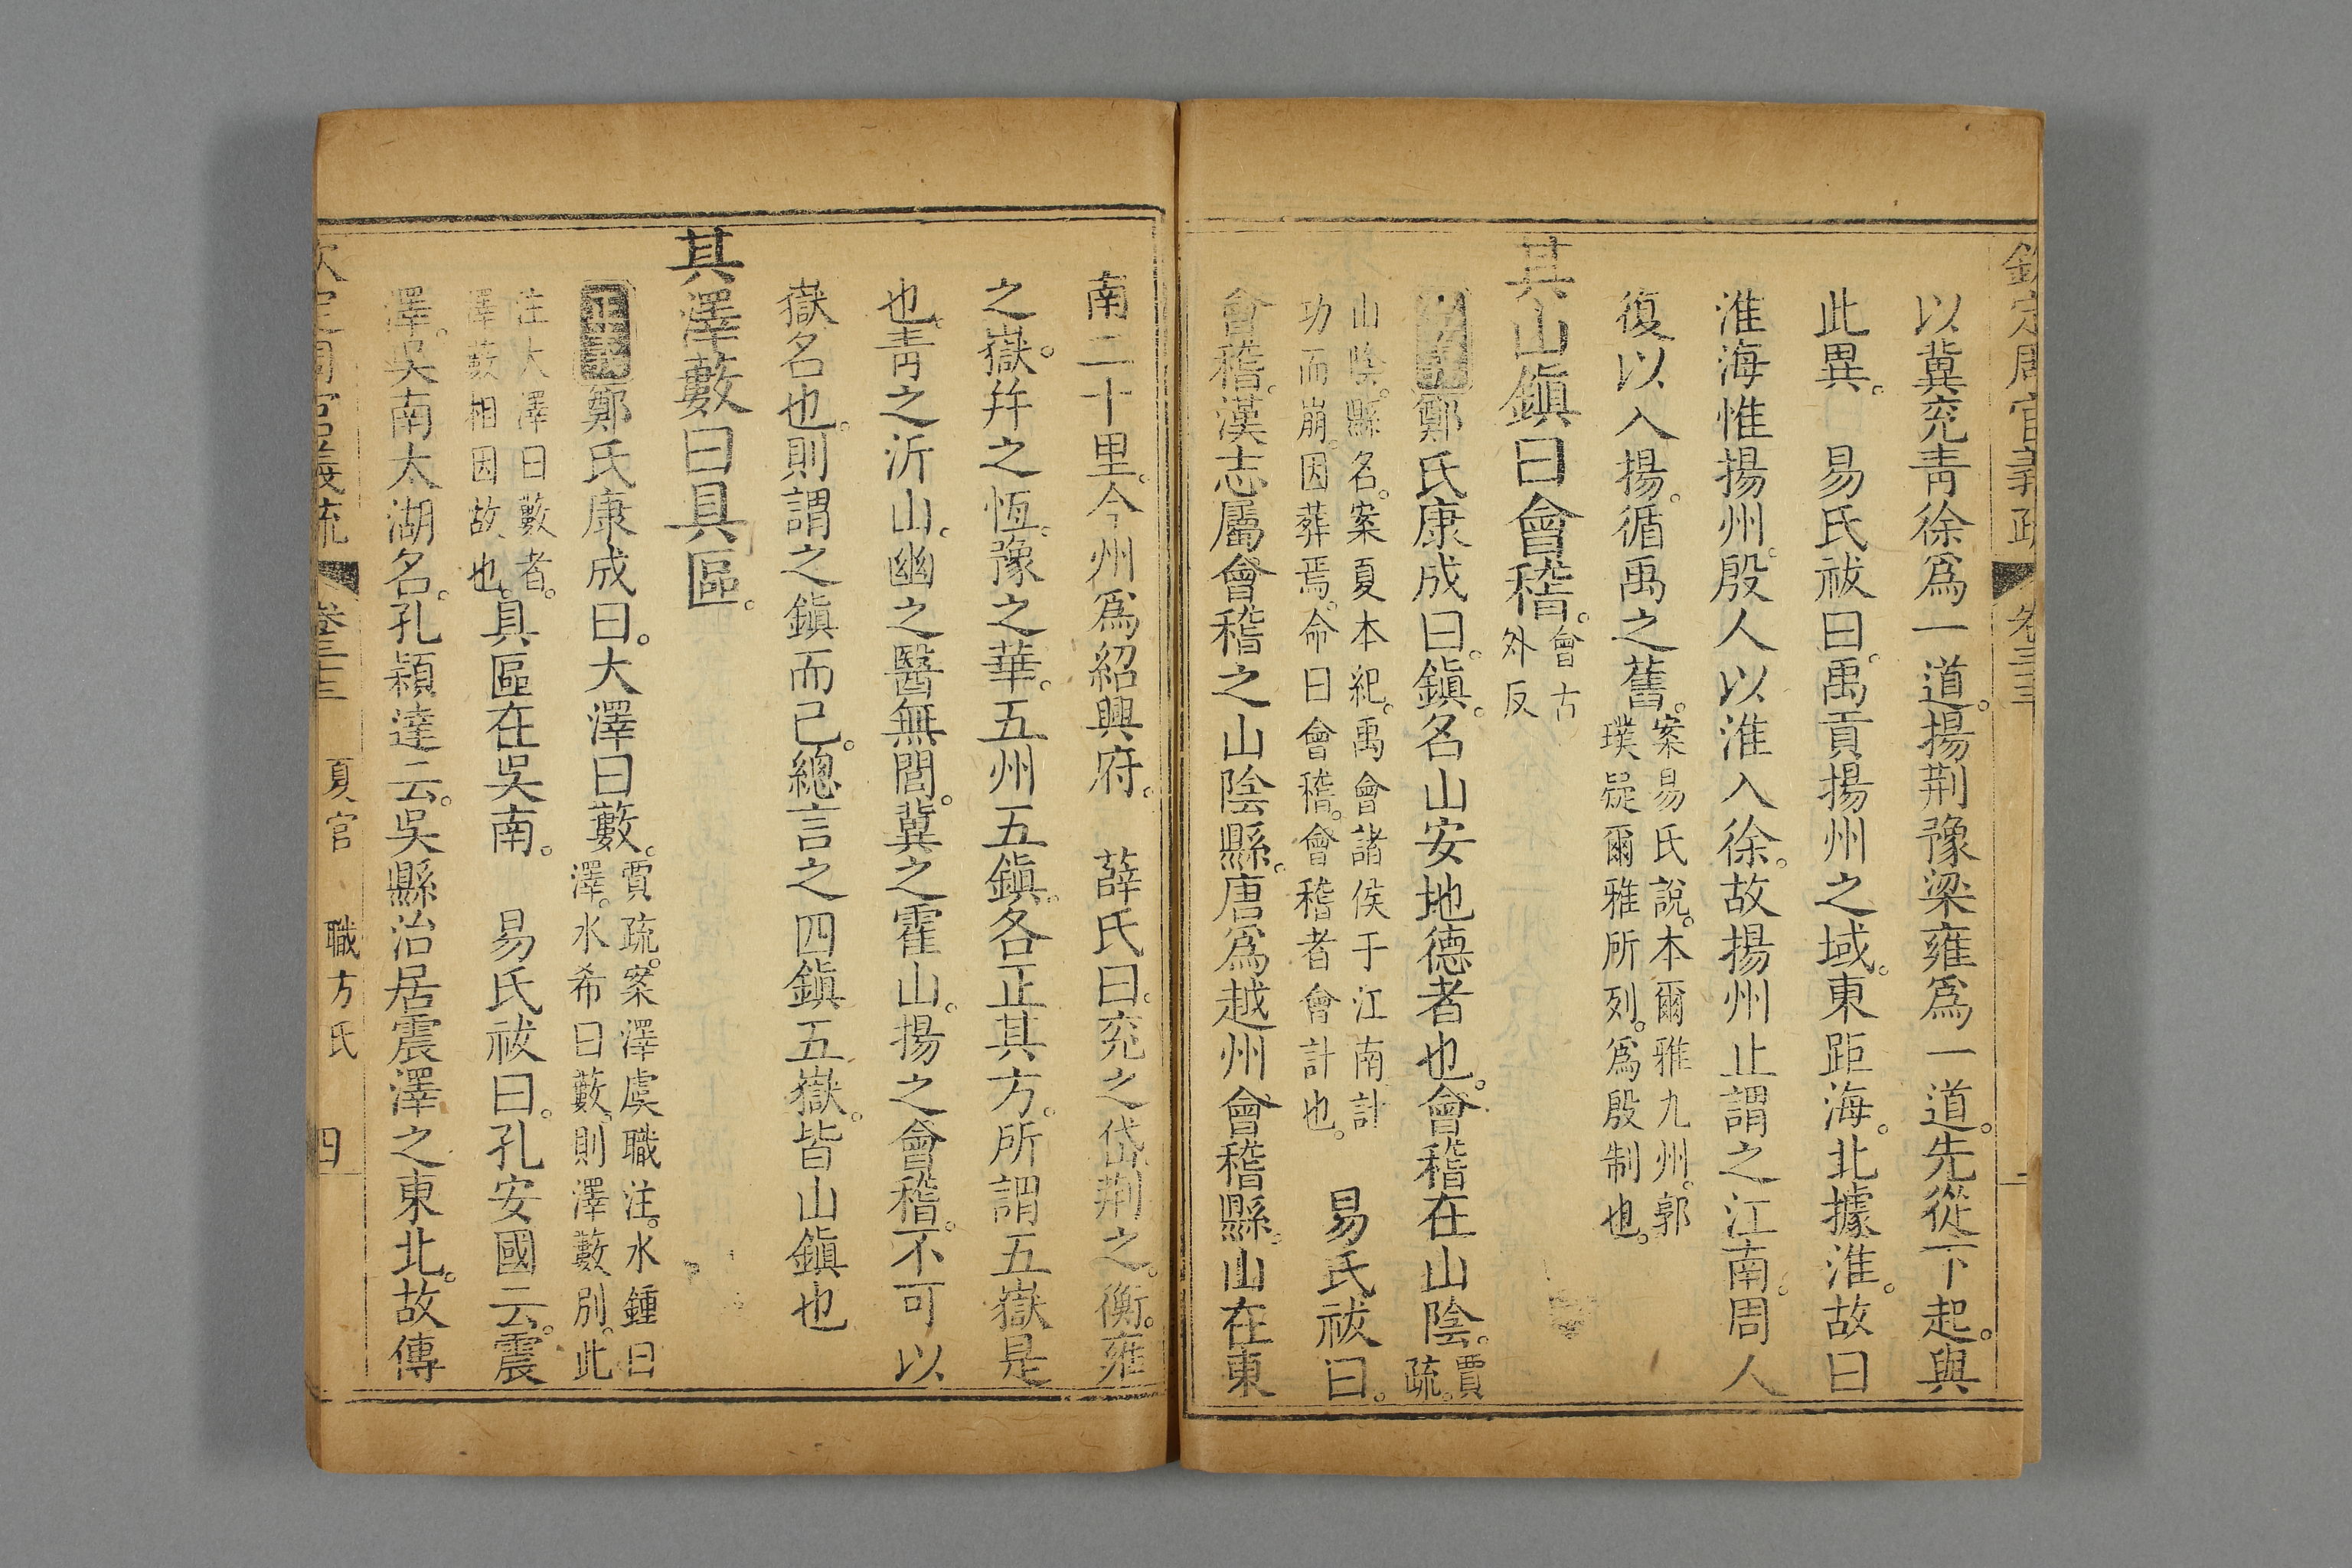 欽定周官義疏 卷三十三
以冀兖靑徐爲一道。揚荆豫梁雍爲一道。先從下起。與
此異。 易氏祓曰。禹貢揚州之域。東距海。北據淮。故曰
淮海惟揚州。殷人以淮入徐。故揚州止謂之江南。周人
復以入揚。循禹之舊。案易氏說。本爾雅九州。郭
璞疑爾雅所列。爲殷制也。
其山鎭曰會稽。會古
外反
鄭氏康成曰。鎭。名山安地德者也。會稽在山陰。賈
疏。
山陰。縣名。案夏本紀。禹會諸侯于江南計
功而崩。因葬焉。命曰會稽。會稽者會計也。 易氏祓曰。
會稽。漢志屬會稽之山陰縣。唐爲越州會稽縣。山在東
南二十里。今州爲紹興府。 薛氏曰。兖之岱。荆之衡。雍
之嶽。幷之恆。豫之華。五州五鎭。各正其方。所謂五嶽是
也。靑之沂山。幽之醫無閭。冀之霍山。揚之會稽。不可以
嶽名也。則謂之鎭而已。總言之四鎭五嶽。皆山鎭也
其澤藪曰具區。
正義鄭氏康成曰。大澤曰藪。賈疏。案澤虞職注。水鍾曰
澤。水希曰藪。則澤藪別。此
注大澤曰藪者。
澤藪相因故也。具區在吳南。 易氏祓曰。孔安國云。震
澤。吳南太湖名。孔穎達云。吳縣治居震澤之東北。故傳
欽定周官義疏 卷三十三 夏官 職方氏 四